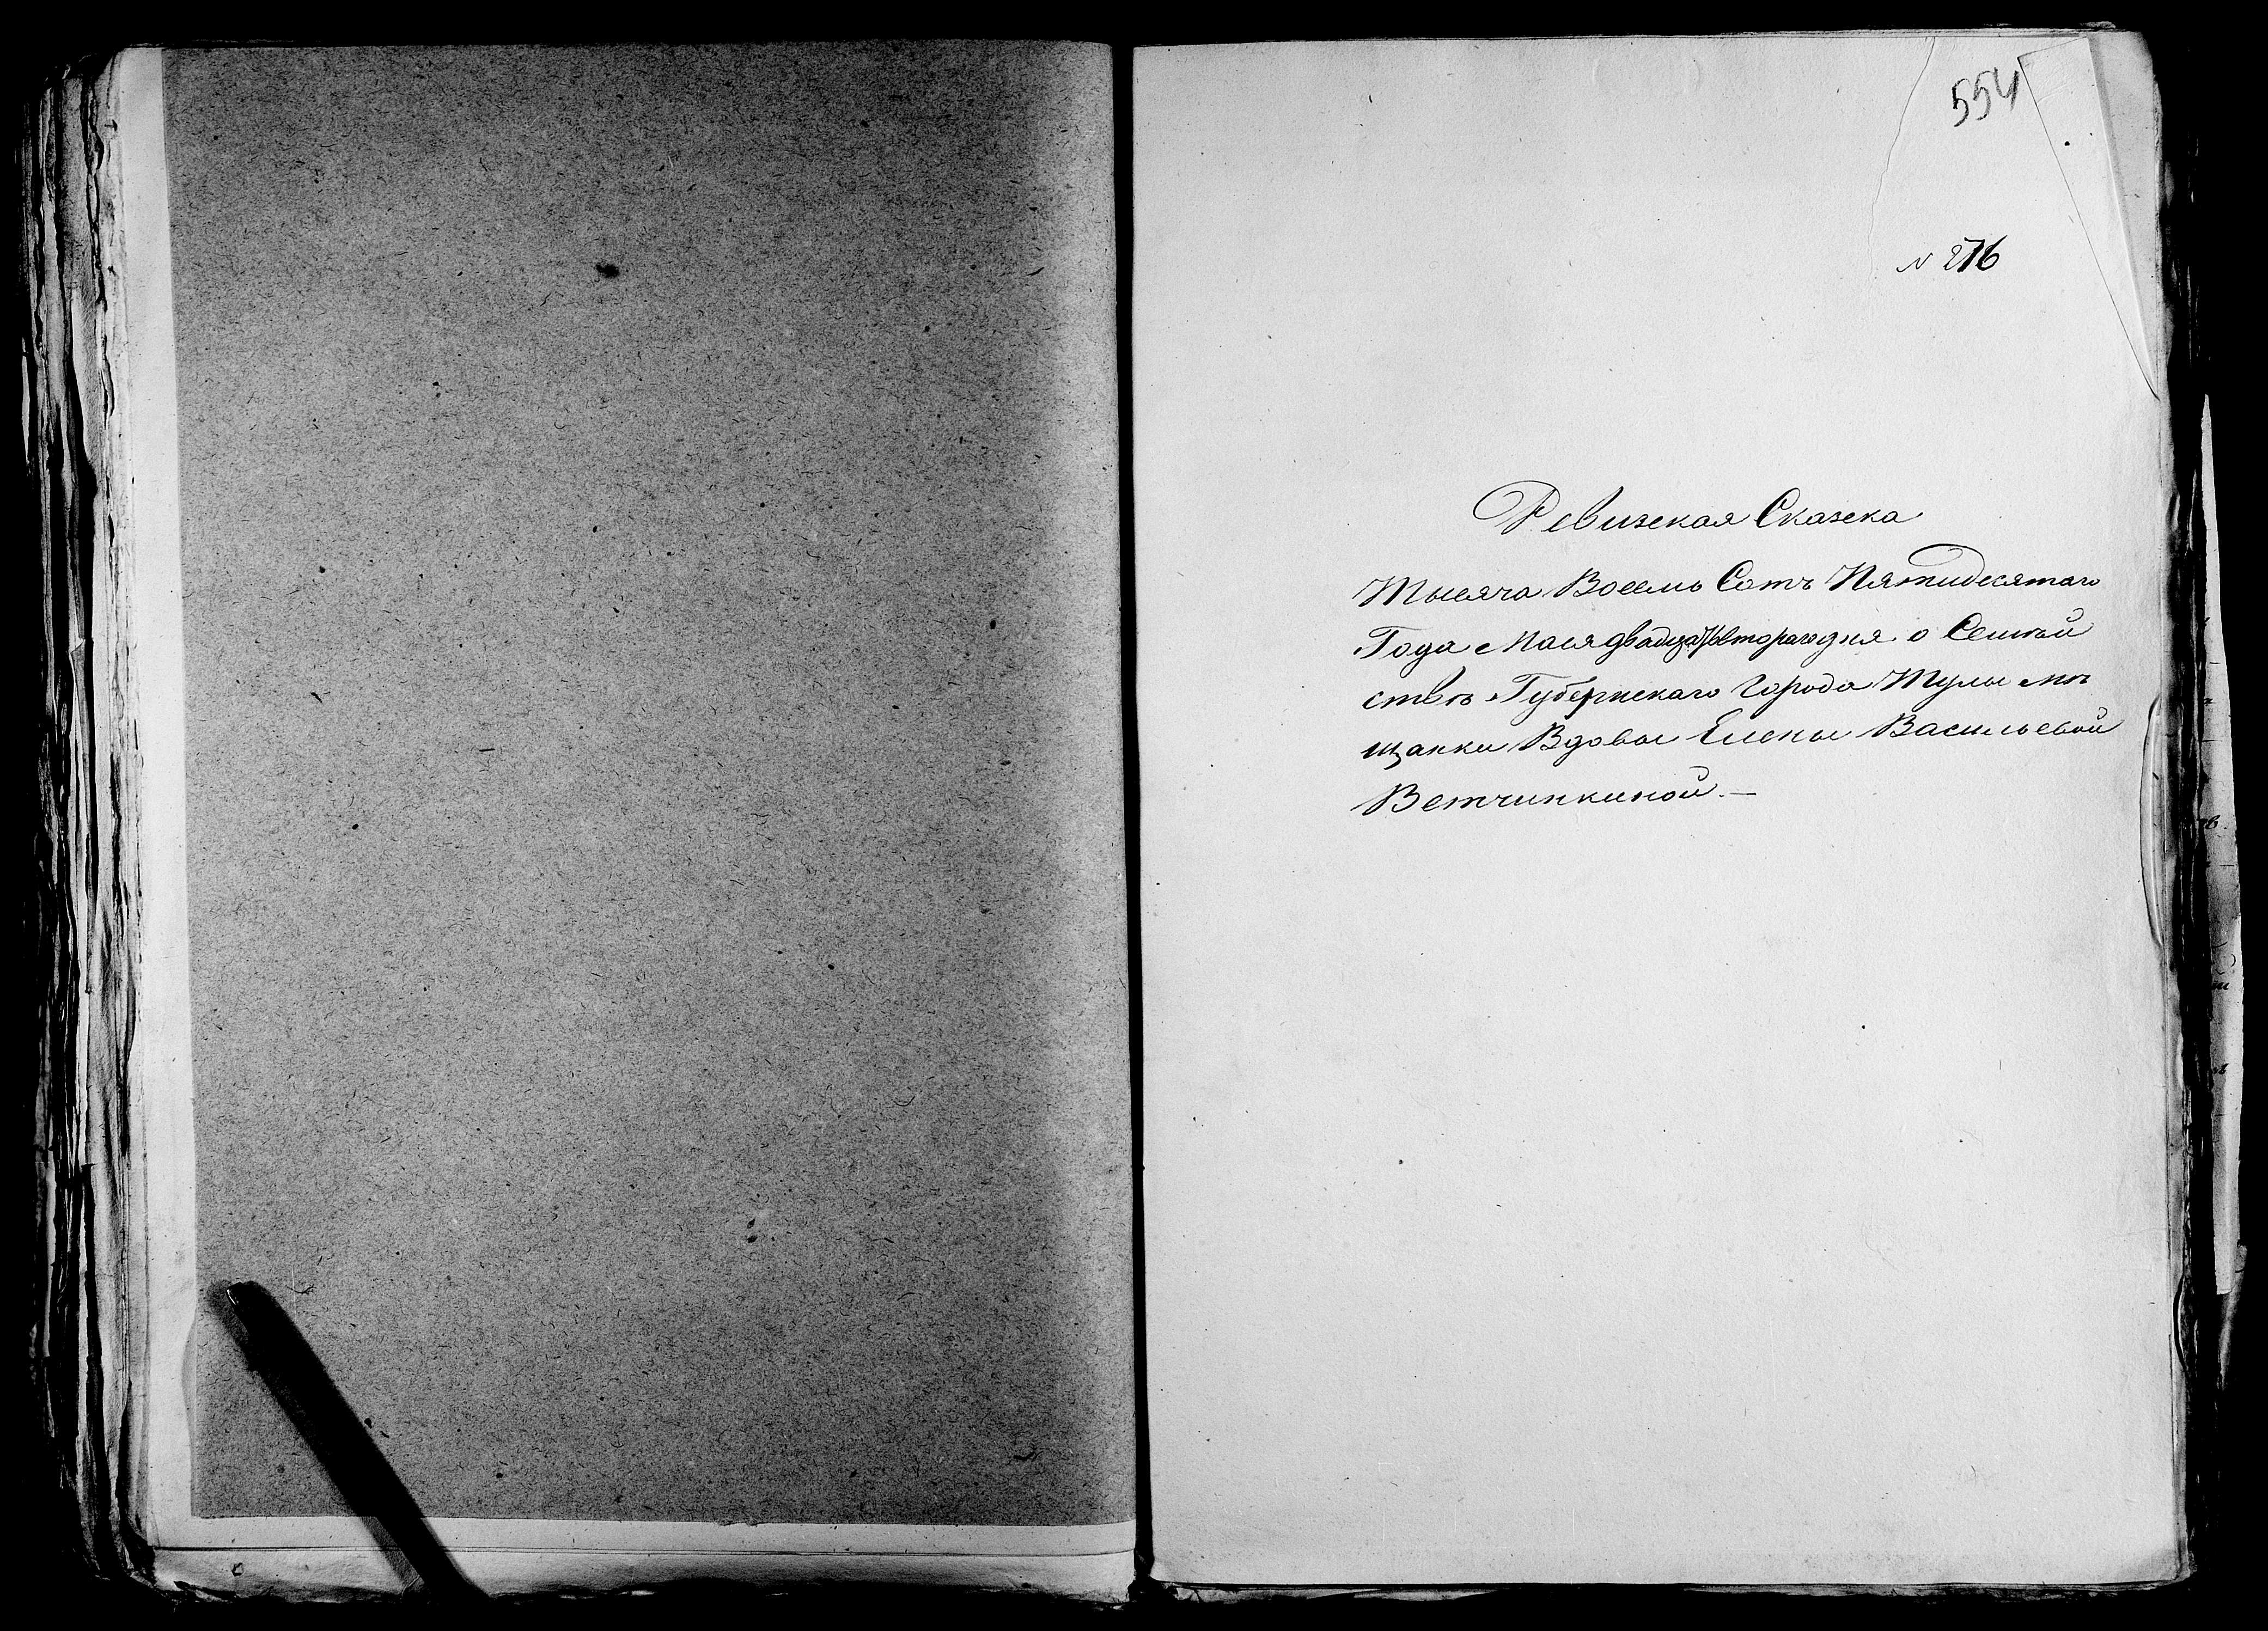 554
N 276
Ревизская Сказска
Тысяча Восемь Сотъ Пятидесятаго
Года Мая двадцать втораго дня о Семѣй
ствѣ Губернскаго города Тулы мѣ
щанки Вдовы Елены Васильевой
Ветчинкиной. —